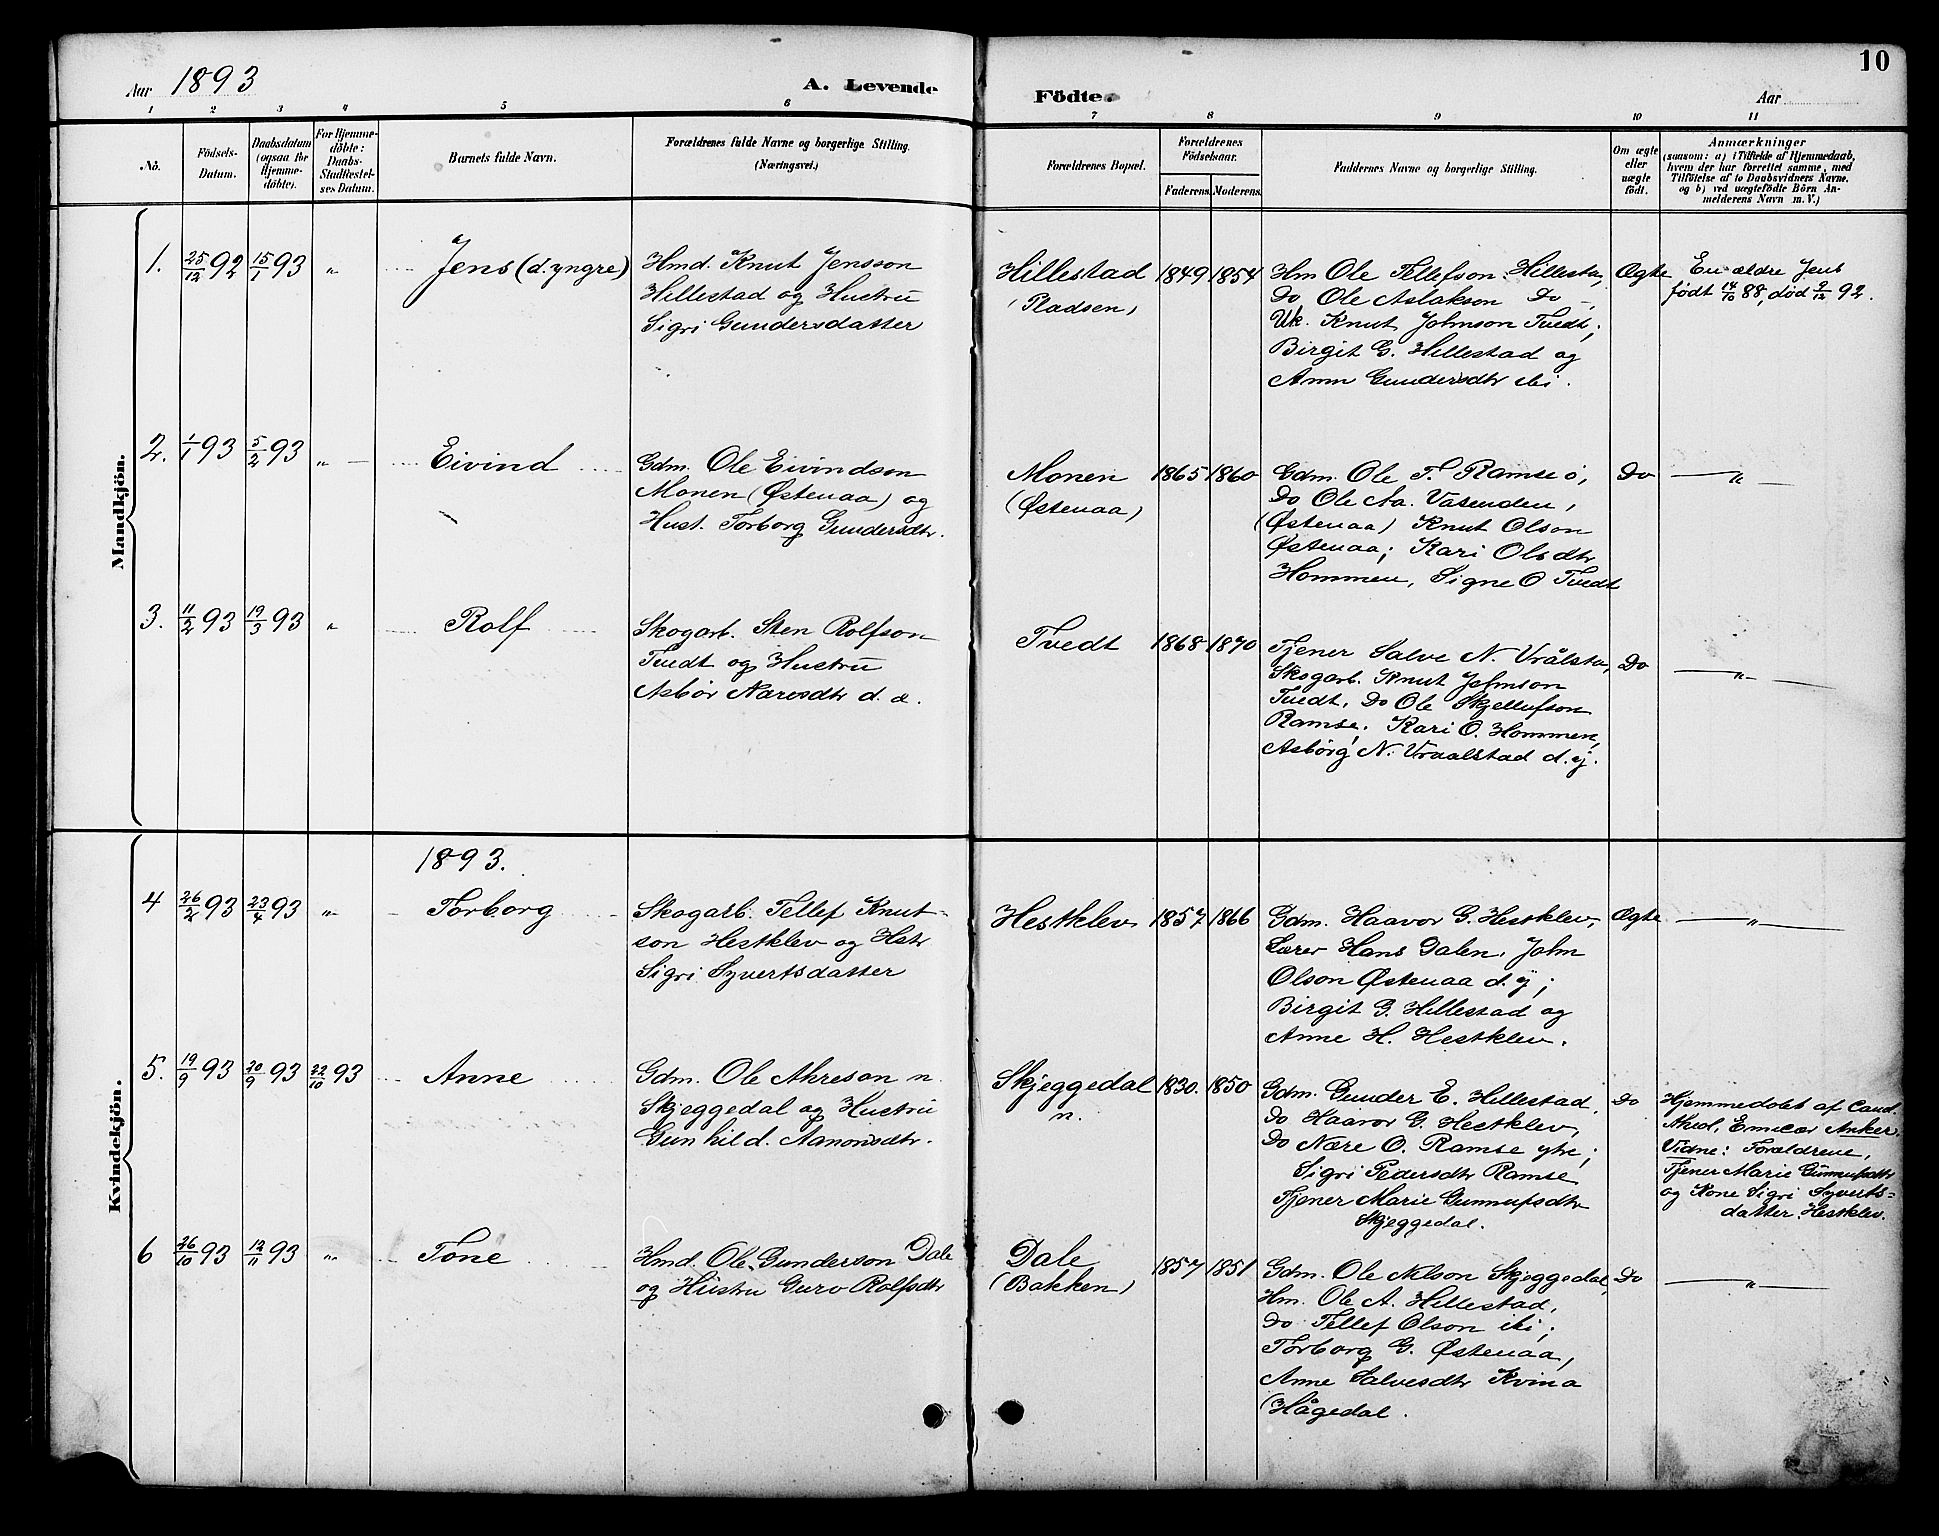 10
Aar 1893
A. Levende Födte.
Aar
1 2 3 4 5 6 7 8 9 10 11
No.
Födsels-
Datum.
Daabsdatum
(ogsaa for
Hjemme-
döbte).
For Hjemme-
döbte:
Daabs-
Stadfæstel-
ses Datum.
Barnets fulde Navn.
Forældrenes fulde Navne og borgerlige Stilling.
(Næringsvei.)
Forældrenes Bopæl.
Forældrenes
Födselsaar.
Faderens. Moderens.
Faddernes Navne og borgerlige Stilling.
Om ægte
eller
uægte
födt.
Anmærkninger
(saasom: a) i Tilfælde af Hjemmedaab,
hvem der har forrettet samme, med
Tilföielse af to Daabsvidners Navne.
og b) ved uægtefödte Börn An-
melderens Navn m. V.)
Mandkjön.
1. 25/12 92 15/1 93 " Jens (d. yngre)
Hmd. Knut Jensson
Hillestad og Hustru
Sigri Gundersdatter
Hillestad
(Pladsen)
1849 1854
Hm Ole Tellefson Hillesta,
Do Ole Aslakson Do -,
Uk. Knut Johnson Tvedt;
Birgit G. Hillestad og
Ann Gundersdtr ibi.
Ægte
En ældre Jens
født 14/10 88, død 9/12 92.
2. 1/1 93 5/2 93 " Eivind
Gdm. Ole Eivindson
Monen (Østenaa) og
Hust. Torborg Gundersdtr.
Monen
(Østenaa)
1865 1860
Gdm. Ole T. Ramse ö,
Do Ole Aa. Vatenden,
(Østenaa) Knut Olson
Østenaa; Kari Olsdtr
Hommen, Signe O Tvedt
Do
"
3. 11/2 93 19/3 93 " Rolf
Skogarb. Sten Rolfson
Tvedt og Hustru
Asbör Næresdtr d. æ.
Tvedt
1868 1870
Tjener Salve N. Vrålsta,
Skogarb. Knut Johnson
Tvedt, Do Ole Skjellufson
Ramse; Kari O. Hommen,
Asbörg N. Vraalstad d. y.
Do
"
Kvindekjön.
1893.
4 26/2 93 23/4 93 " Torborg
Skogarb. Tellef Knut-
son Hestklev og Hstr
Sigri Syvertsdatter
Hestklev
1857 1866
Gdm. Haavor G. Hestklev,
Lærer Hans Dalen, John
Olson Østenaa d. y;
Birgit G. Hillestad og
Anne H. Hestklev.
Ægte
"
5. 19/9 93 20/9 93 22/10 93 Anne
Gdm. Ole Akreson n.
Skjeggedal og Hustru
Gunhild Aanonsdtr.
Skjeggedal
n.
1830. 1850
Gdm. Gunder E. Hillestad,
Do Haavor G. Hestklev,
Do Nære O. Ramse ytre;
Sigri Pedersdtr Ramse
Tjener Marie Gunnufsdtr
Skjeggedal.
Do
Hjemmedøbt af Cand.
theol. Anker.
Vidne: Forældrene,
Tjener Marie Gunnufsdtr
og Kone Sigri Syverts-
datter Hestklev.
6 26/10 93 12/11 93 " Tone
Hmd. Ole Gunderson Dale
og Hustru Guro Rolfsdtr
Dale
(Bakken)
1857 1851
Gdm. Ole Nelson Skjeggedal,
Hm. Ole A. Hillestad,
Do Tellef Olson ibi;
Torborg G. Østenaa,
Anne Salvesdtr Kvina
(Hågedal.
Do
"